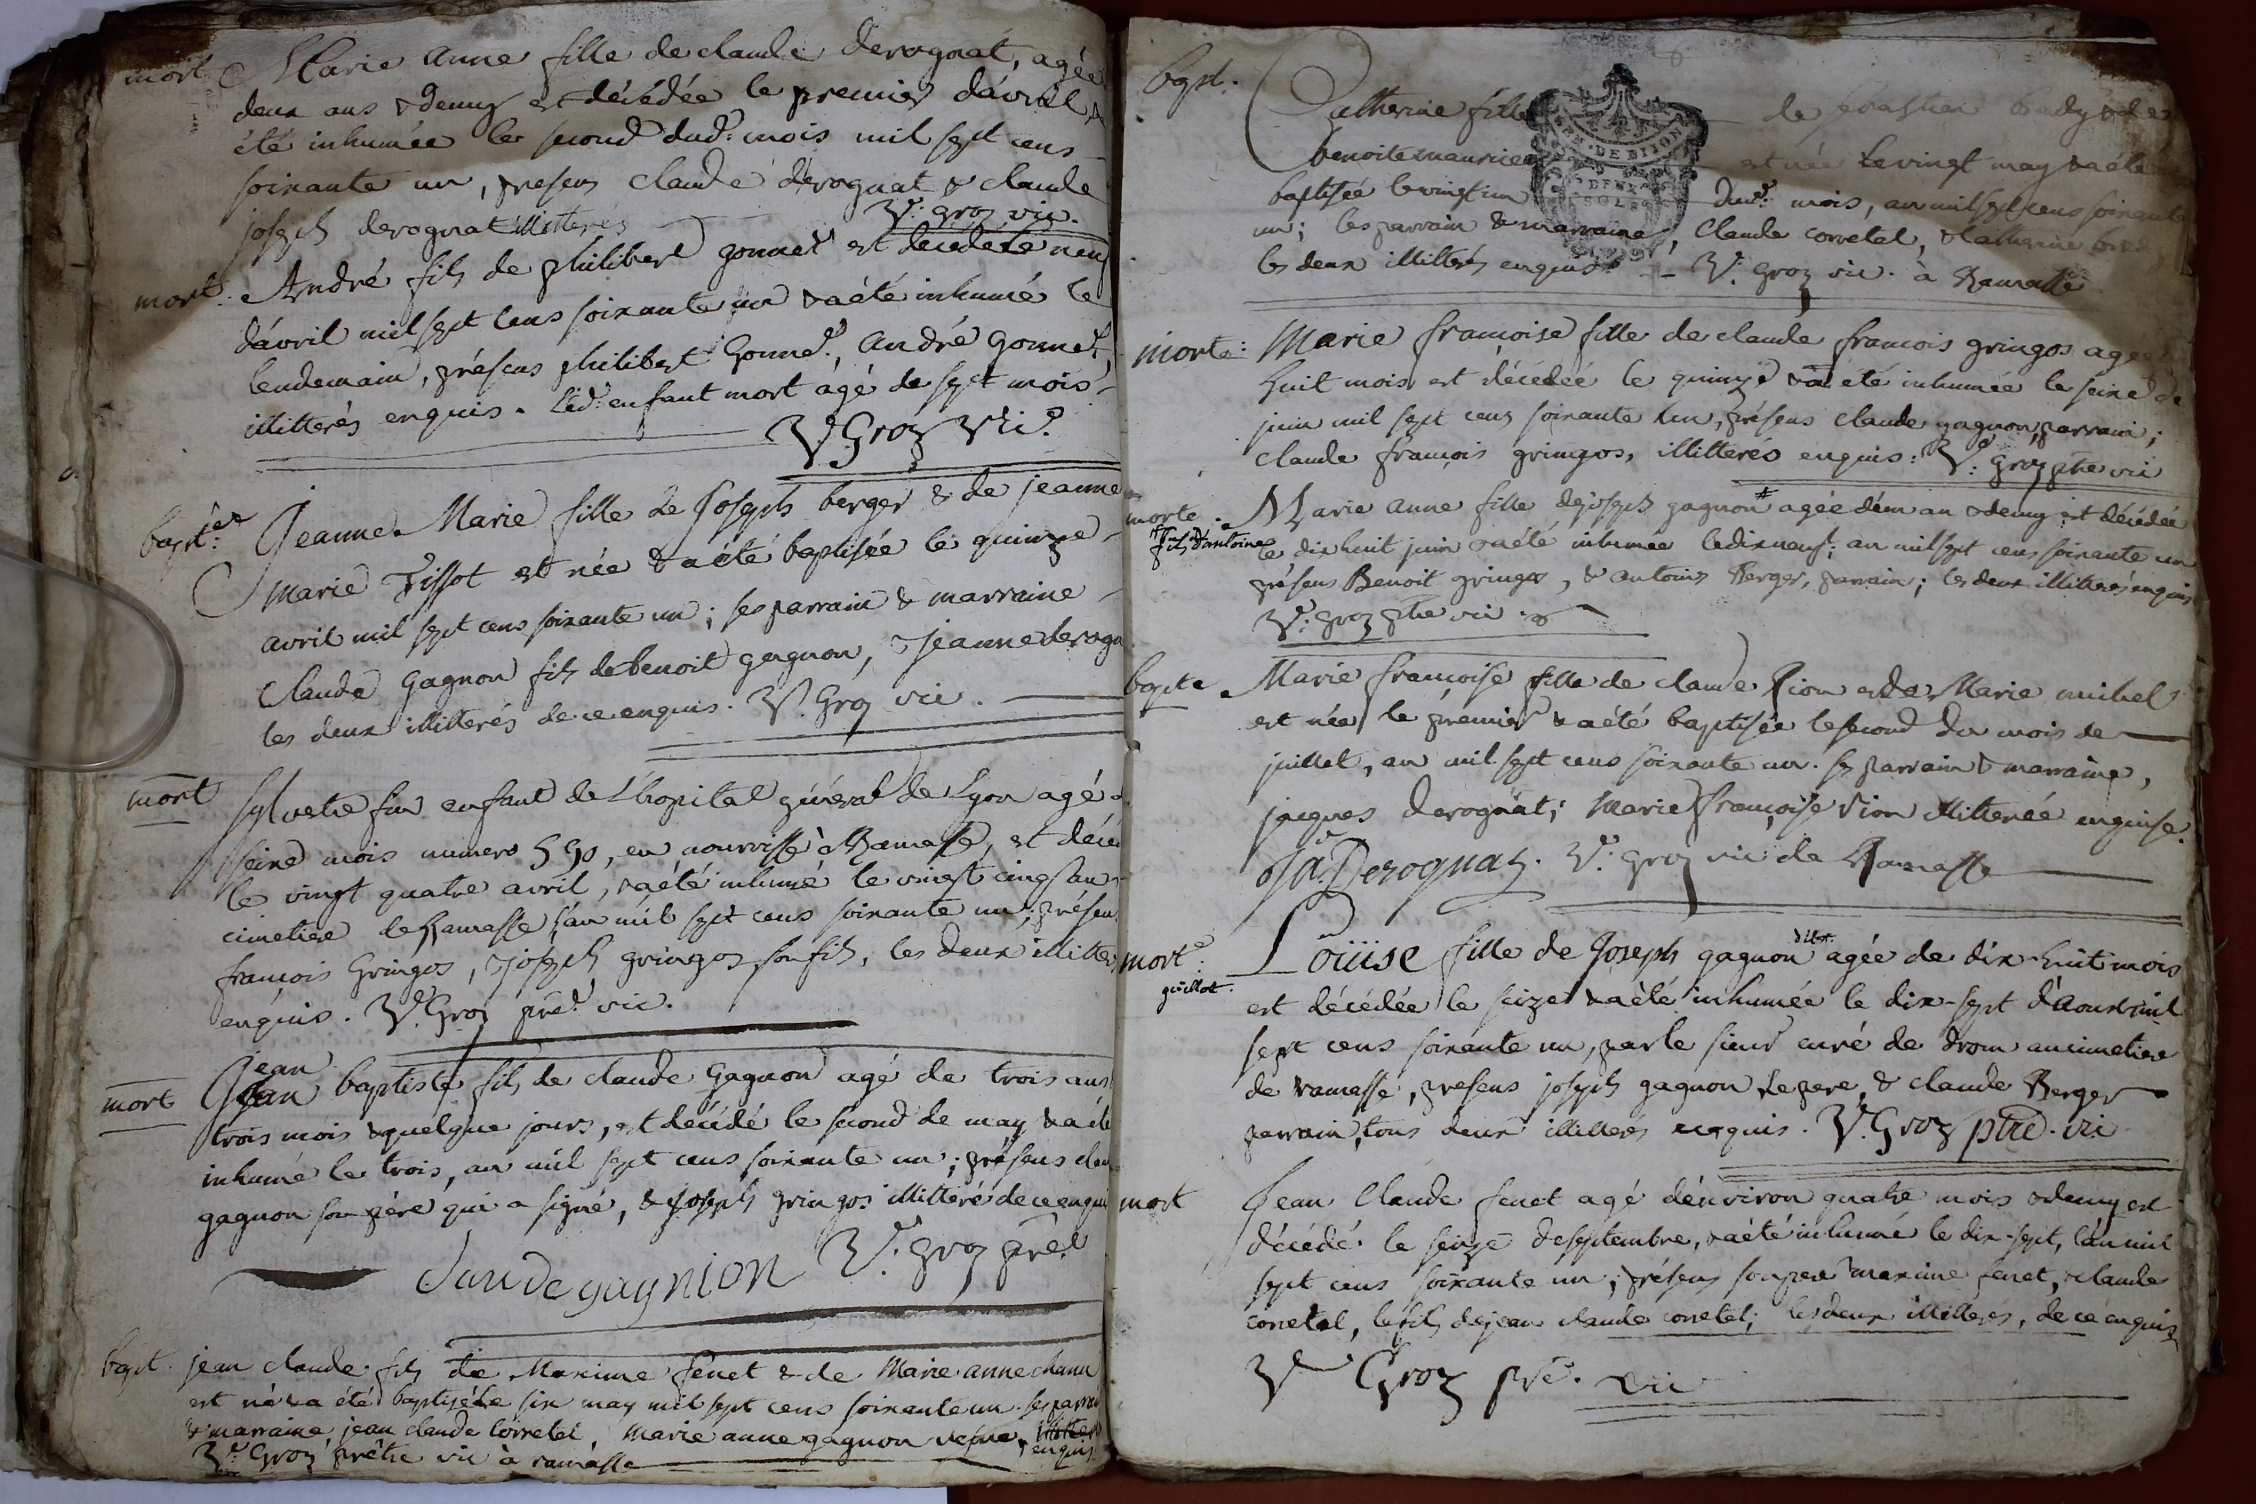 mort Marie anne fille de claude derognat, agée
deux ans & demy est décédée le premier d'avril, &
été inhumée le second dud: mois mil sept cens
soixante un, presens claude derognat & claude
joseph derognat illitterés
V: groz vic.
mort. André fils de philibert gonnet est decédé le neuf
d'avril mil sept cens soixante un & a été inhumé le
lendemain, présens philibert Gonnet, andré gonnet,
illitterés enquis. led: enfant mort agé de sept mois
V Groz Vic.
bapt: Jeanne Marie fille de Joseph berger & de jeanne
marie Tissot est née & a été baptisée le quinze
avril mil sept cens soixante un; ses parrain & marraine
claude gagnon fils de benoit gagnon, Jeanne derogn
les deux illitterés de ce enquis. V. Groz vic.
mort sylvestre fin enfant de l'hopital général de Lyon agé
seize mois numero 590, en nourrisse à Ramasse, est décé
le vingt quatre avril, & a été inhumé le vingt cinq au
cimetiere de Ramasse l'an mil sept cens soixante un; présen
françois Gringos, Joseph gringos son fils, les deux illitter
enquis. V. Groz pre. vic.
jean
mort Jean baptiste fils de claude Gagnon agé de trois ans
trois mois & quelque jours, est décédé le second de may & a été
inhumé le trois, an mil sept cens soixante un; présens clau
gagnon son pére qui a signé, & Joseph gringos illitteré de ce enqui
claude gagnion V. groz pre.
bapt. jean claude fils de Maxime fenet & de Marie anne chanu
est né & a été baptisé le six may mil sept cens soixante un. ses parrai
& marraine, jean claude corretel, Marie anne gagnon veuve, illitter
enquis
V. Groz prêtre vic à ramasse
bapt. Catherine fille de sébastien & de
benoite mauricier est née le vingt may & a été
baptisée le vingt un dud: mois, an mil sept cens soixante
un; les parrain & marraine, Claude corretel, & Catherine
les deux illitterés enquis. V. groz vic. à Ramasse
GEN. DE DIJON
DEUX
SOLS
morte: Marie françoise fille de claude francois gringos agée
huit mois est décédée le quinze & a été inhumée le seize de
juin mil sept cens soixante un, présens claude gagnon, parrain;
claude françois gringos, illitterés enquis: V: groz ptre vic
morte. Marie anne fille de joseph gagnon # agée d'un an & demy est décédée
# fils d'antoine
le dix huit juin & a été inhumée le dix neuf, an mil sept cens soixante un
présens Benoit gringos, & antoine Berger, parrain; les deux illitterés enquis
V. groz ptre vic.
bapte. Marie françoise fille de claude Vion et de Marie michel
est née le premier & a été baptisée le second du mois de
juillet, an mil sept cens soixante un. ses parrain & marraine,
jacques derognat; Marie françoise Vion illitterée enquise.
Ja. Derognat. V. groz vic de Ramasse
dilet.
morte. Loüise fille de Joseph gagnon agée de dix-huit mois
guillot.
est décédée le seize & a été inhumée le dix-sept d'aoust mil
sept cens soixante un, par le sieur curé de drom au cimetiere
de ramasse, presens joseph gagnon le pere, & claude Berger
parrain, tous deux illitterés enquis. V. Groz ptre. vic
mort Jean Claude fenet agé d'environ quatre mois & demy est
décédé le seize de septembre, & a été inhumé le dix-sept, l'an mil
sept cens soixante un, présens son pere maxime fenet, & claude
corretel, le fils de jean claude corretel; les deux illitterés, de ce enquis
V Groz pre. vic